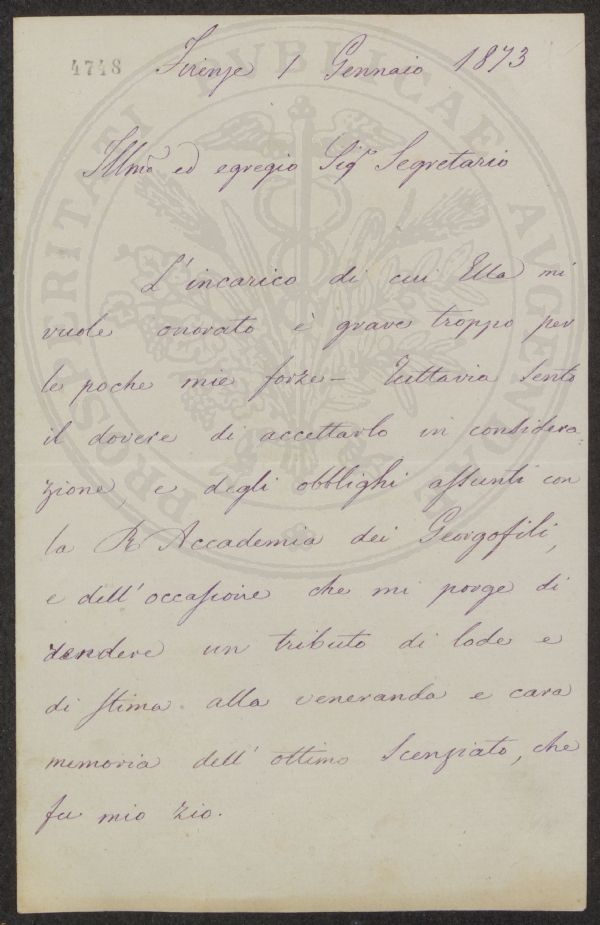 4748
Firenze 1 Gennaio 1873
Illmo ed egregio Sigr Segretario
L'incarico di cui Ella mi
vuole onorato è grave troppo per
le poche mie forze – Tuttavia sento
il dovere di accettarlo in considera=
zione, e degli obblighi assunti con
la R Accademia dei Georgofili,
e dell'occasione che mi porge di
rendere un tributo di lode e
di stima alla veneranda e cara
memoria dell'ottimo Scenziato, che
fu mio zio.
PROSPERITATI PUBLICAE AUGENDAE